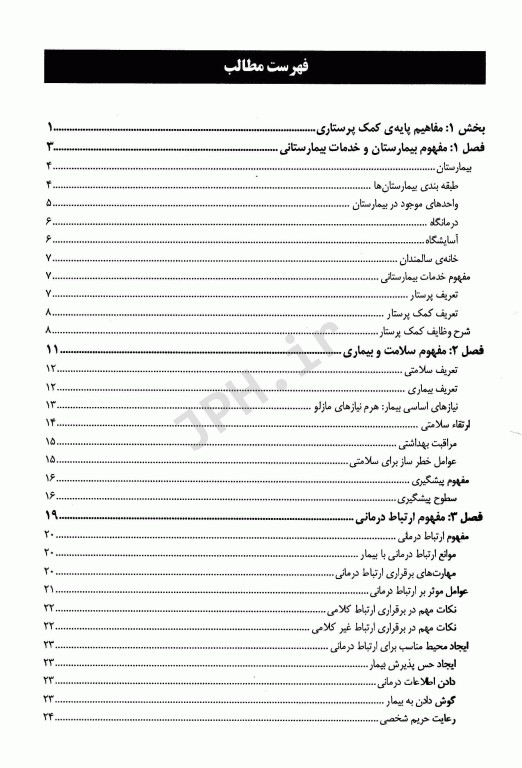 فهرست مطالب
بخش ۱: مفاهیم پایه‌ی کمک پرستاری ........ ۱
فصل ۱: مفهوم بیمارستان و خدمات بیمارستانی ........ ۳
بیمارستان ........ ۴
طبقه بندی بیمارستان‌ها ........ ۴
واحدهای موجود در بیمارستان ........ ۵
درمانگاه ........ ۶
آسایشگاه ........ ۶
خانه‌ی سالمندان ........ ۷
مفهوم خدمات بیمارستانی ........ ۷
تعریف پرستار ........ ۷
تعریف کمک پرستار ........ ۸
شرح وظایف کمک پرستار ........ ۸
فصل ۲: مفهوم سلامت و بیماری ........ ۱۱
تعریف سلامتی ........ ۱۲
تعریف بیماری ........ ۱۲
نیازهای اساسی بیمار: هرم نیازهای مازلو ........ ۱۳
ارتقاء سلامتی ........ ۱۴
مراقبت بهداشتی ........ ۱۵
عوامل خطر ساز برای سلامتی ........ ۱۵
مفهوم پیشگیری ........ ۱۶
سطوح پیشگیری ........ ۱۶
فصل ۳: مفهوم ارتباط درمانی ........ ۱۹
مفهوم ارتباط درمانی ........ ۲۰
موانع ارتباط درمانی با بیمار ........ ۲۰
مهارت‌های برقراری ارتباط درمانی ........ ۲۰
عوامل موثر بر ارتباط درمانی ........ ۲۱
نکات مهم در برقراری ارتباط کلامی ........ ۲۲
نکات مهم در برقراری ارتباط غیر کلامی ........ ۲۲
ایجاد محیط مناسب برای ارتباط درمانی ........ ۲۳
ایجاد حس پذیرش بیمار ........ ۲۳
دادن اطلاعات درمانی ........ ۲۳
گوش دادن به بیمار ........ ۲۳
رعایت حریم شخصی ........ ۲۴
JPH.ir